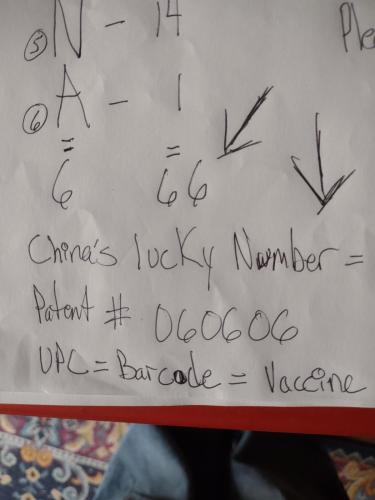 ⑤ N - 14
Ple
⑥ A - 1
= =
6 66
China's lucky Number =
Patent # 060606
UPC = Barcode = Vaccine